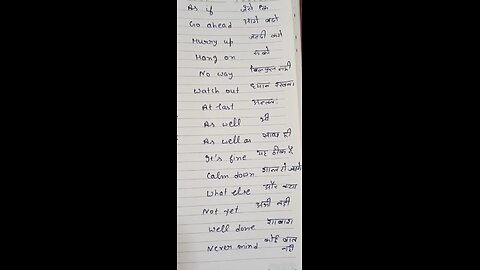 As if जैसे कि
Go ahead आगे बढो
Hurry up जल्दी करो
Hang on रुको
No way बिल्कुल नही
Watch out ध्यान रखना
At last अन्ततः
As well भी
As well as साथ ही
It's fine यह ठीक है
Calm down शान्त हो जाओ
What else और क्या
Not yet अभी नही
Well done शाबाश
Never mind कोई बात नही